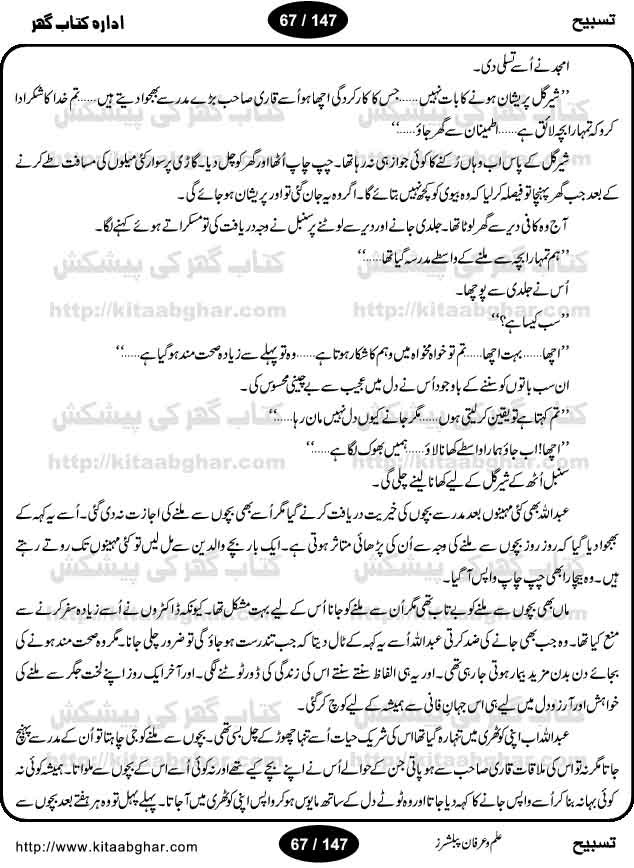 تسبیح
67 / 147
ادارہ کتاب گھر
امجد نے اُسے تسلی دی۔
’’شیر گل پریشان ہونے کا بات نہیں......جس کا کارکردگی اچھا ہو اُسے قاری صاحب بڑے مدرسے بھجوا دیتے ہیں......تم خدا کا شکر ادا
کرو کہ تمہارا بچہ لائق ہے......اطمینان سے گھر جاؤ......‘‘
شیر گل کے پاس اب وہاں رُکنے کا کوئی جواز ہی نہ رہا تھا۔ چپ چاپ اُٹھا اور گھر کو چل دیا۔ گاڑی پر سوار کئی میلوں کی مسافت طے کرنے
کے بعد جب گھر پہنچا تو فیصلہ کر لیا کہ وہ بیوی کو کچھ نہیں بتائے گا۔ اگر وہ یہ جان گئی تو اور پریشان ہو جائے گی۔
آج وہ کافی دیر سے گھر لوٹا تھا۔ جلدی جانے اور دیر سے لوٹنے پر سنبل نے وجہ دریافت کی تو مسکراتے ہوئے کہنے لگا۔
’’ہم تمہارا بچہ سے ملنے کے واسطے مدرسہ گیا تھا......‘‘
اُس نے جلدی سے پوچھا۔
’’سب کیسا ہے؟‘‘
’’اچھا...... بہت اچھا...... تم تو خواہ مخواہ میں وہم کا شکار ہوتا ہے......وہ تو پہلے سے زیادہ صحت مند ہو گیا ہے......‘‘
ان سب باتوں کو سننے کے باوجود اُس نے دل میں عجیب سے بے چینی محسوس کی۔
’’تم کہتا ہے تو یقین کر لیتی ہوں......مگر جانے کیوں دل نہیں مان رہا......‘‘
’’اچھا! اب جاؤ ہمارا واسطے کھانا لاؤ......ہمیں بھوک لگا ہے......‘‘
سنبل اُٹھ کے شیر گل کے لیے کھانا لینے چلی گی۔
عبداللہ بھی کئی مہینوں بعد مدرسے بچوں کی خیریت دریافت کرنے گیا مگر اُسے بھی بچوں سے ملنے کی اجازت نہ دی گئی۔ اُسے یہ کہہ کے
بھجوا دیا گیا کہ روز روز بچوں سے ملنے کی وجہ سے اُن کی پڑھائی متاثر ہوتی ہے۔ ایک بار بچے والدین سے مل لیں تو کئی مہینوں تک روتے رہتے
ہیں۔ وہ بیچارا بھی چپ چاپ واپس آ گیا۔
ماں بھی بچوں سے ملنے کو بے تاب تھی مگر اُن سے ملنے کو جانا اُس کے لیے بہت مشکل تھا۔ کیونکہ ڈاکٹروں نے اُسے زیادہ سفر کرنے سے
منع کیا تھا۔ وہ جب بھی جانے کی ضد کرتی عبداللہ اُسے یہ کہہ کے ٹال دیتا کہ جب تندرست ہو جاؤ گی تو ضرور چلی جانا۔ مگر وہ صحت مند ہونے کی
بجائے دن بدن مزید بیمار ہوتی جا رہی تھی۔ اور یہ ہی الفاظ سنتے سنتے اُس کی زندگی کی ڈور ٹوٹنے لگی۔ اور آخر ایک روز اپنے لخت جگر سے ملنے کی
خواہش اور آرزو دل میں لیے ہی اس جہانِ فانی سے ہمیشہ کے لیے کوچ کر گئی۔
عبداللہ اب اپنی کوٹھری میں تنہا رہ گیا تھا اس کی شریک حیات اُسے تنہا چھوڑ کے چل بسی تھی۔ بچوں سے ملنے کو جی چاہتا تو اُن کے مدرسے پہنچ
جاتا مگر نہ تو اس کی ملاقات قاری صاحب سے ہو پاتی جن کے حوالے اُس نے اپنے بچے کیسے تھے اور نہ کوئی اُسے اس کے بچوں سے ملواتا۔ ہمیشہ کوئی نہ
کوئی بہانہ بنا کر اُسے واپس جانے کا کہہ دیا جاتا اور وہ ٹوٹے دل کے ساتھ مایوس ہو کر واپس اپنی کوٹھری میں آ جاتا۔ پہلے پہل تو وہ ہر ہفتے بعد بچوں سے
کتاب گھر کی پیشکش
http://kitaabghar.com
http://www.kitaabghar.com
67 / 147
علم و عرفان پبلشرز
تسبیح